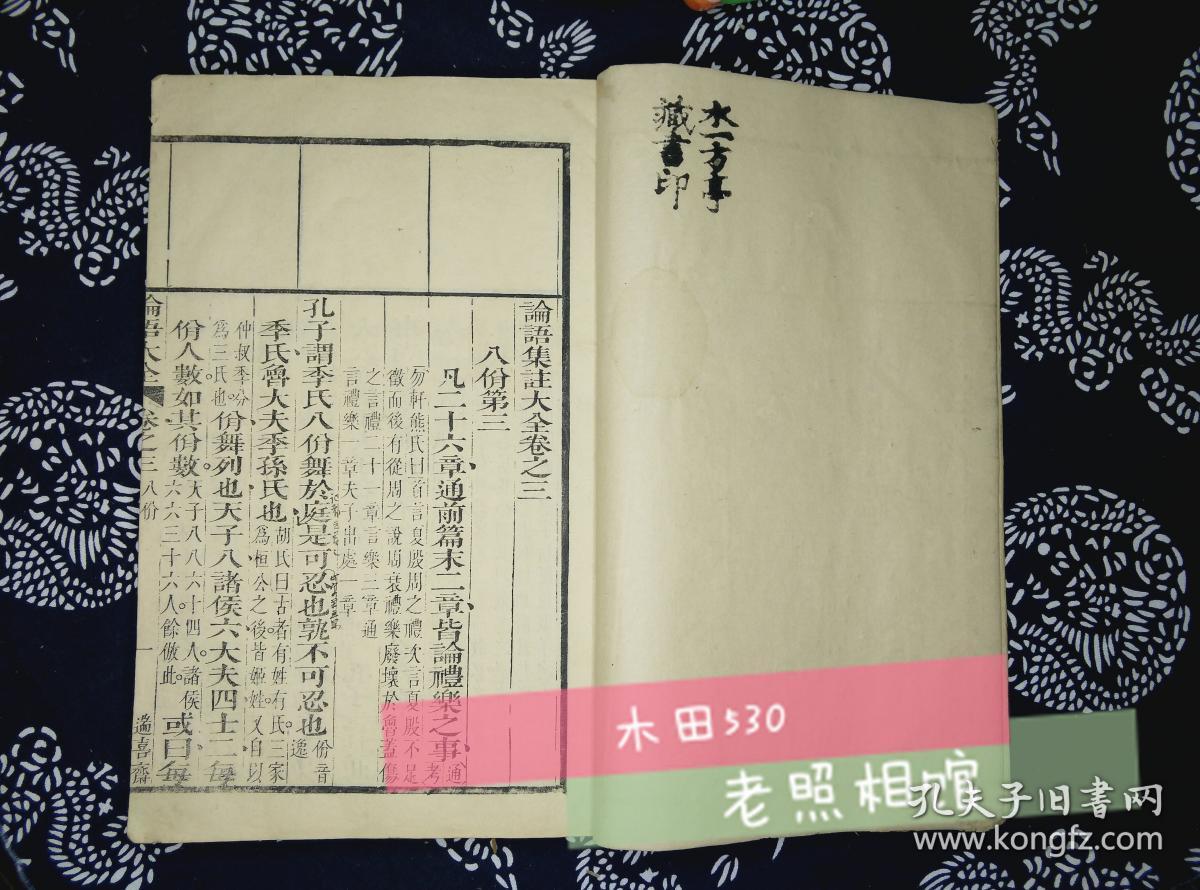 水一方亭
藏書印
論語集註大全卷之三
八佾第三
凡二十六章通前篇末二章皆論禮樂之事通考
勿軒熊氏曰首言夏殷周之禮次言夏殷不足
徵而後有從周之說周衰禮樂廢壞於魯蓋傷
之言禮二十一章言樂三章通
言禮樂一章夫子出處一章
孔子謂季氏八佾舞於庭是可忍也孰不可忍也佾音逸
季氏魯大夫季孫氏也胡氏曰古者有姓有氏三家
為桓公之後皆姬姓又自以
仲叔季分
為三氏也佾舞列也天子八諸侯六大夫四士二每
佾人數如其佾數天子八八六十四人諸侯
六六三十六人餘倣此或曰每
論語大全
卷之三 八佾
一
遜喜齋
木田530
老照相馆
孔夫子旧書网
www.kongfz.com